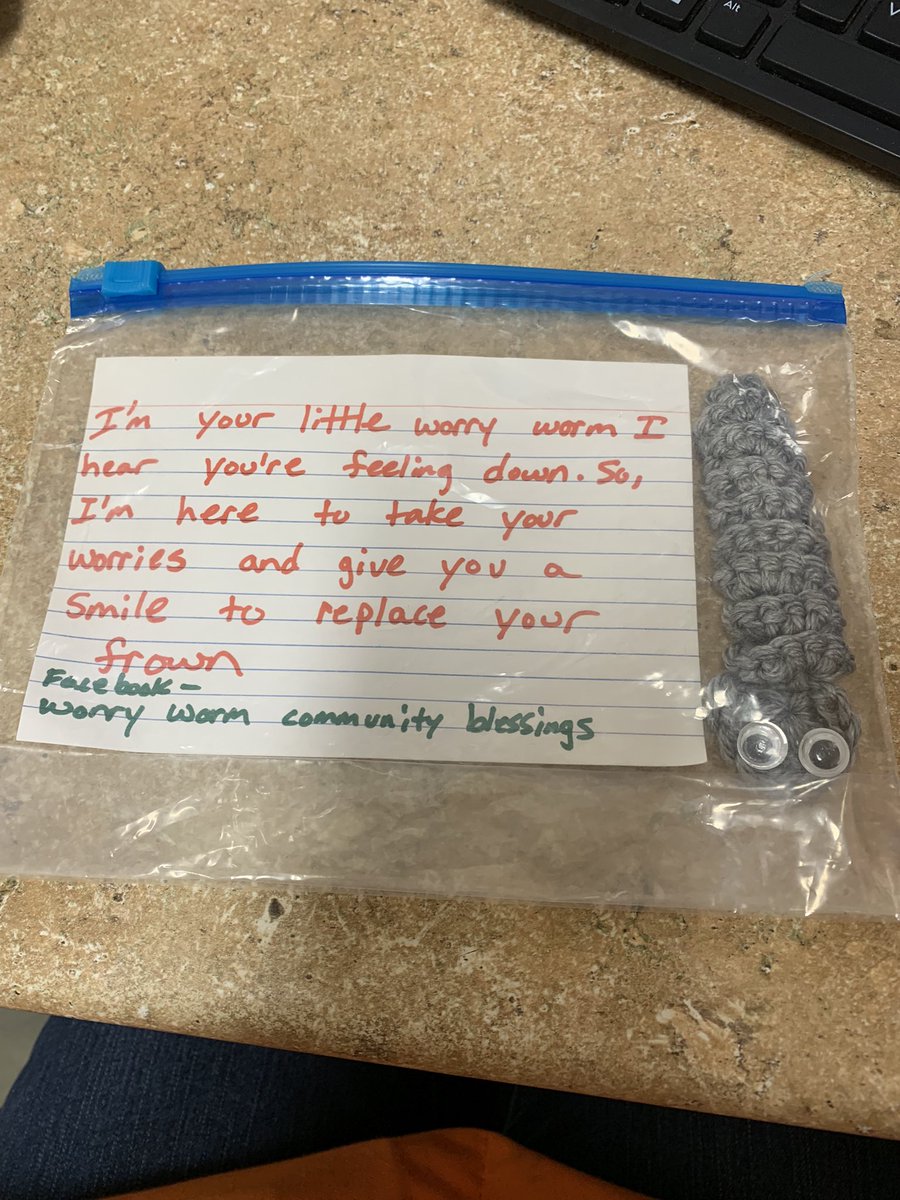 Alt
V
I'm your little worry worm I
hear you're feeling down. So,
I'm here to take your
worries and give you a
smile to replace your
frown
Facebook-
worry worm community blessings